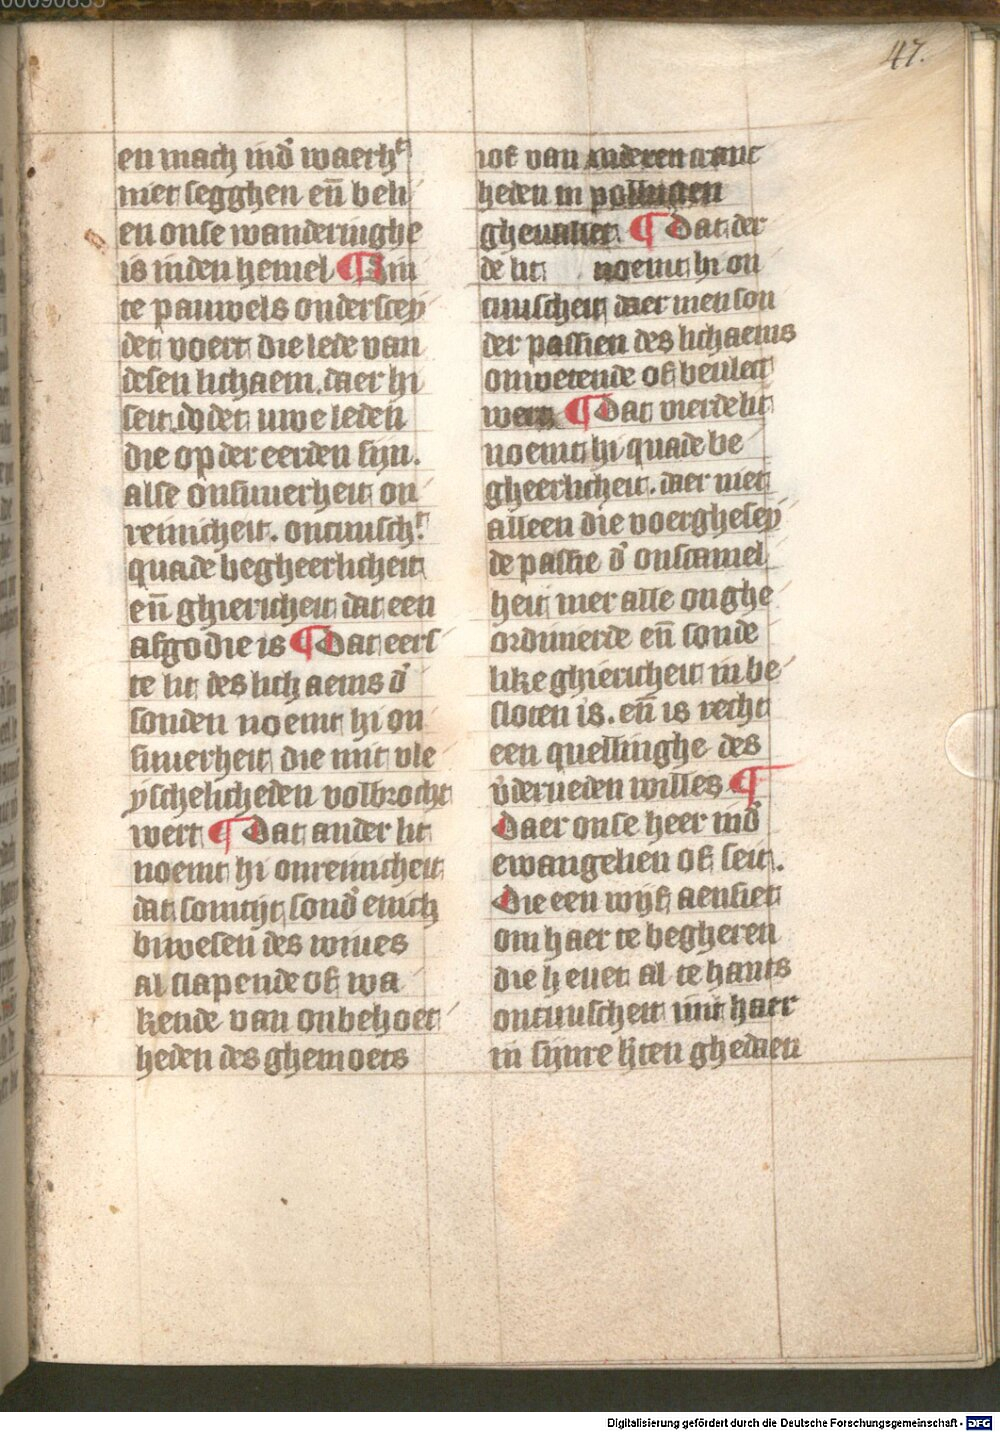 47.
en mach ind̉ waerhᵗ
niet segghen en̄ beh
en onse wanderinghe
is inden hemel ¶ Sin
te pauwels onderscey
det voert die lede van
desen lichaem. daer hi
seit. dodet uwe leden
die op der eerden sijn.
alse onsuuerheit on
reinicheit. oncuuschᵗ.
quade begheerlicheit
en̄ ghiericheit dat een
afgodie is ¶ Dat eers
te lit des lichaems d̉
sonden noemt hi on
suuerheit die mit vle
yschelicheden volbrocht
wert ¶ Dat ander lit
noemt hi onreinicheit
dat somtijt sond̉ enich
biwesen des wiues
al slapende of wa
kende van onbehoet
heden des ghemoets
iof van anderen cranc
heden in
¶ Dat der
de lit noemt hi on
cuuscheit daer men son
der passien des lichaems
onwetende of beulect
¶ Dat vierde lit
noemt hi quade be
gheerlicheit. daer niet
alleen die voerghesey
de passie d̉ onscamel
heit mer alle onghe
ordinierde en̄ sonde
like ghiericheit in be
sloten is. en̄ is recht
een quellinghe des
v̉derueden willes ¶
Daer onse heer ind̉
ewangelien of seit.
Die een wijf aensiet
om haer te begheren
die heuet al te hants
oncuuscheit mit haer
in sijnre herten ghedaen
Digitalisierung gefördert durch die Deutsche Forschungsgemeinschaft - DFG